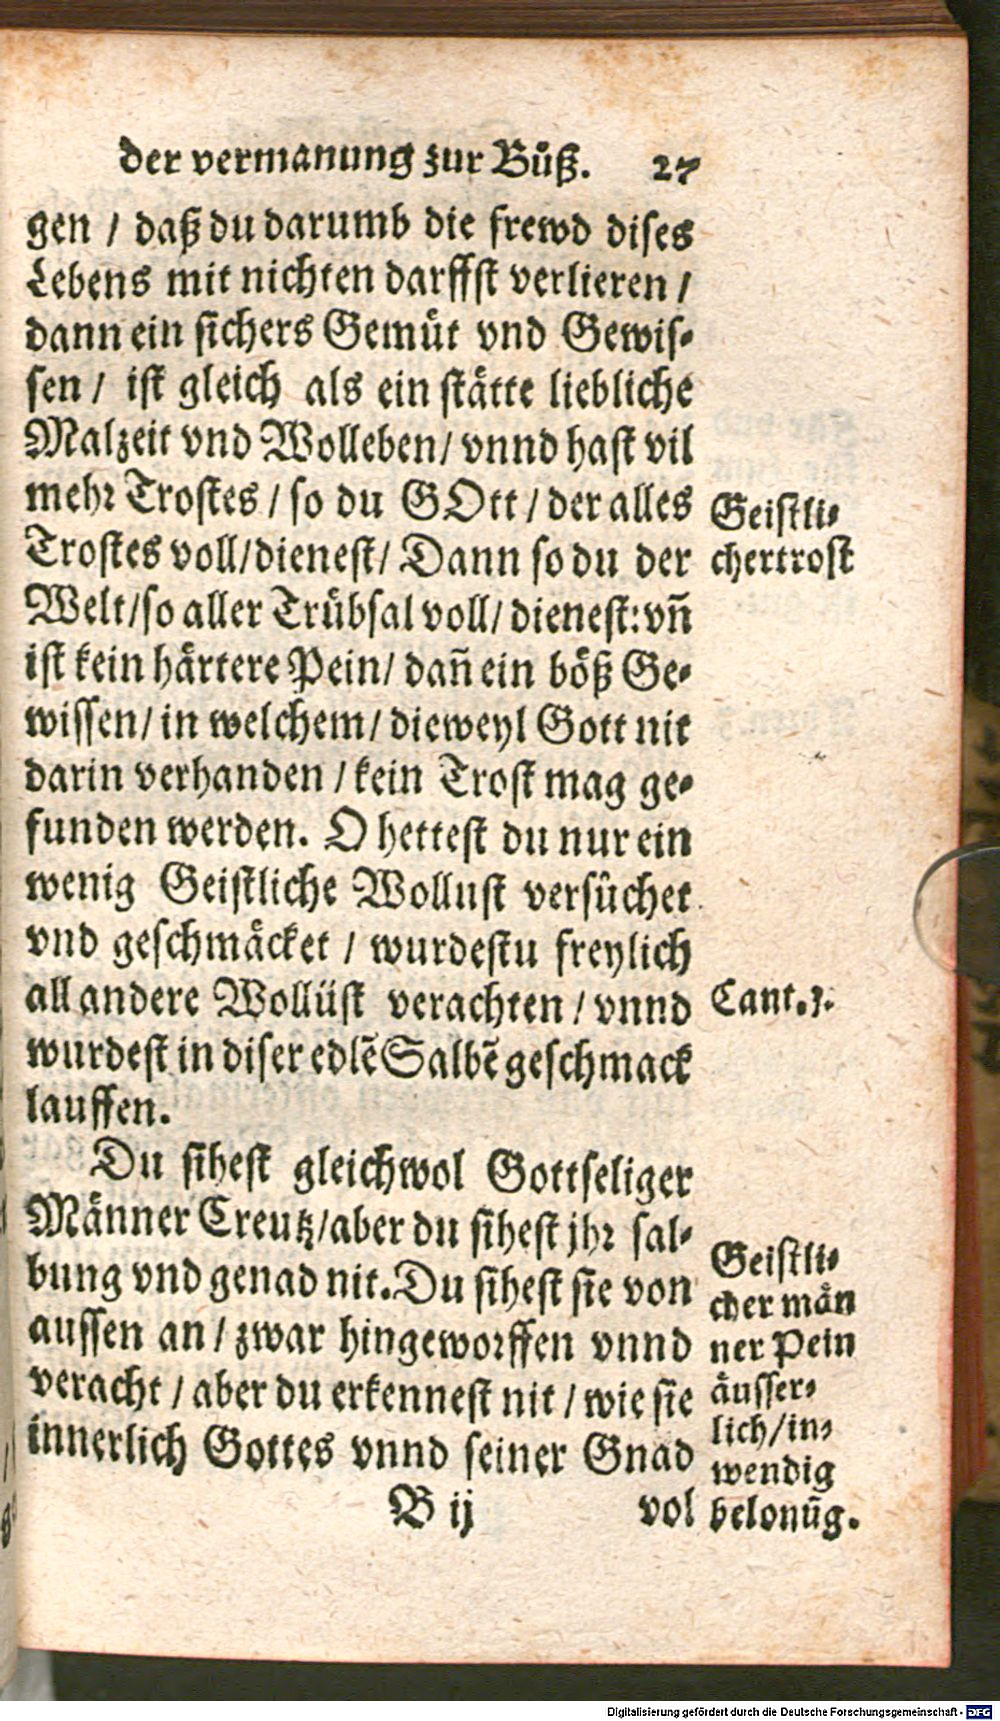 der vermanung zur Buͤß. 27
gen / daß du darumb die frewd dises
Lebens mit nichten darffst verlieren /
dann ein sichers Gemuͤt vnd Gewis-
sen / ist gleich als ein staͤtte liebliche
Malzeit vnd Wolleben / vnnd hast vil
mehr Trostes / so du GOtt / der alles
Trostes voll / dienest / Dann so du der
Welt / so aller Truͤbsal voll / dienest: vñ
ist kein haͤrtere Pein / dañ ein boͤß Ge-
wissen / in welchem / dieweyl Gott nit
darin verhanden / kein Trost mag ge-
funden werden. O hettest du nur ein
wenig Geistliche Wollust versuͤchet
vnd geschmaͤcket / wurdestu freylich
all andere Wolluͤst verachten / vnnd
wurdest in diser edlẽ Salbẽ geschmack
lauffen.
Du sihest gleichwol Gottseliger
Maͤnner Creutz / aber du sihest jhr sal-
bung vnd genad nit. Du sihest sie von
aussen an / zwar hingeworffen vnnd
veracht / aber du erkennest nit / wie sie
innerlich Gottes vnnd seiner Gnad
B ij vol
Geistli-
cher trost
Cant. 1.
Geistli-
cher maͤn
ner Pein
aͤusser-
lich / in-
wendig
belonũg.
Digitalisierung gefördert durch die Deutsche Forschungsgemeinschaft - DFG